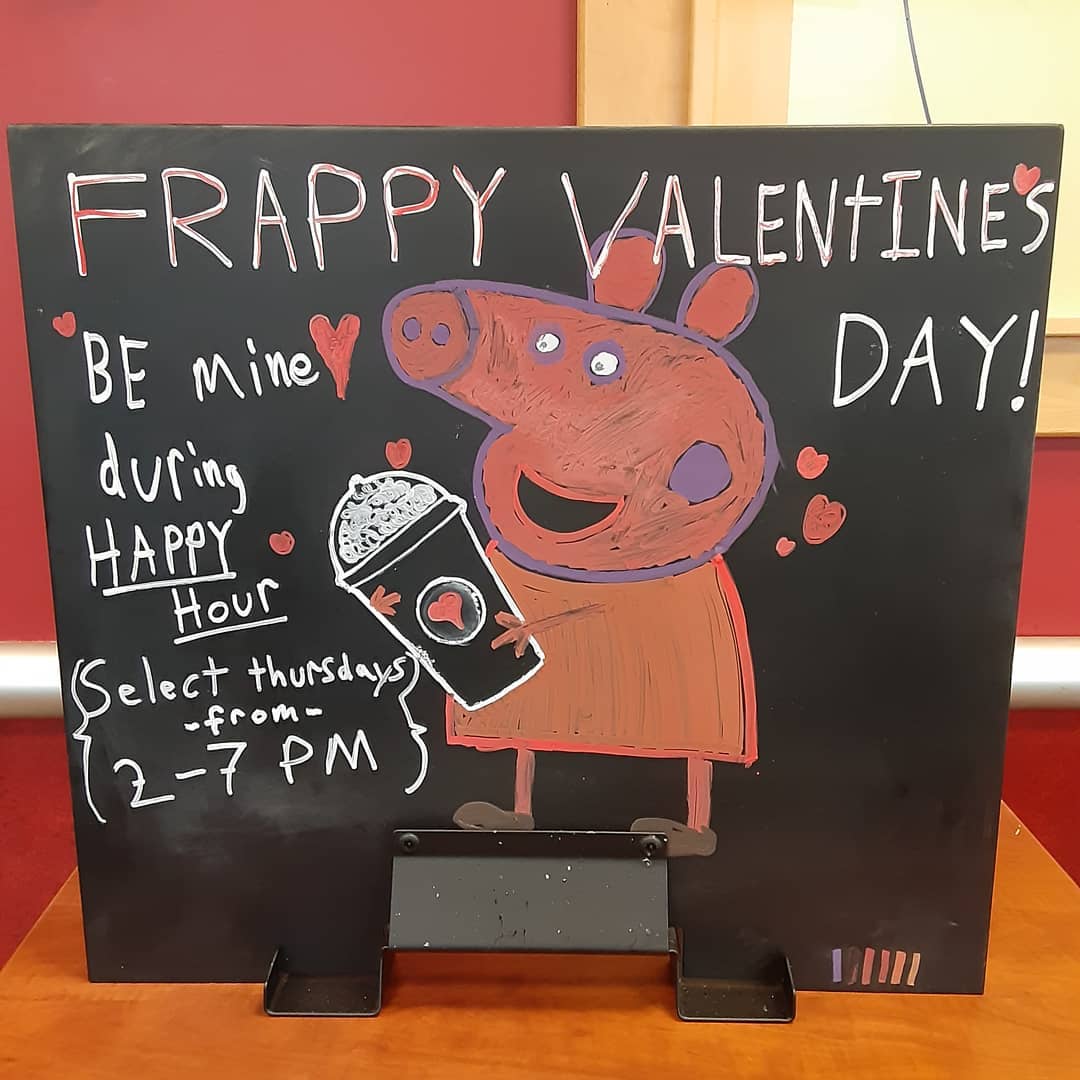 FRAPPY VALENTINE'S
DAY!
BE mine
during
HAPPY
Hour
{Select thursdays}
-from-
2-7 PM